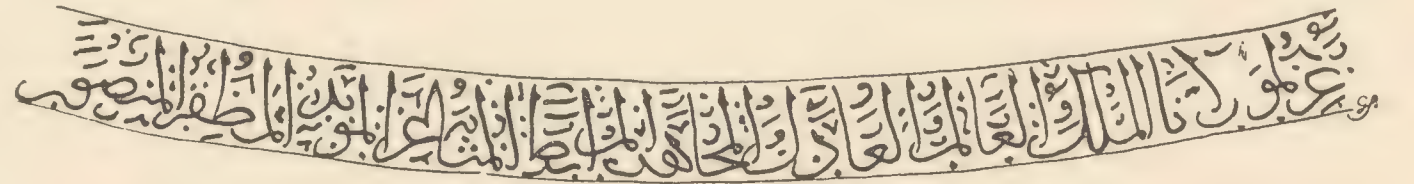 عز لمولانا الملك العالم العادل المجاهد المرابط المثاغر المؤيد المظفر المنصور